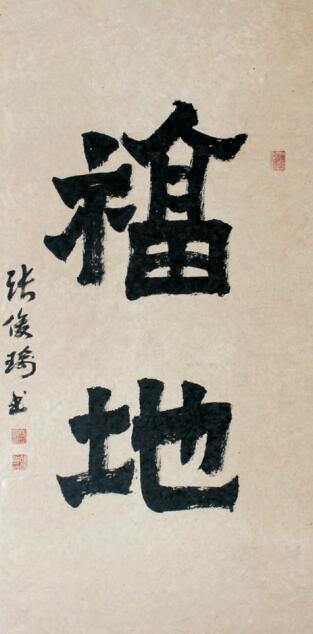 福地
张俊琦书